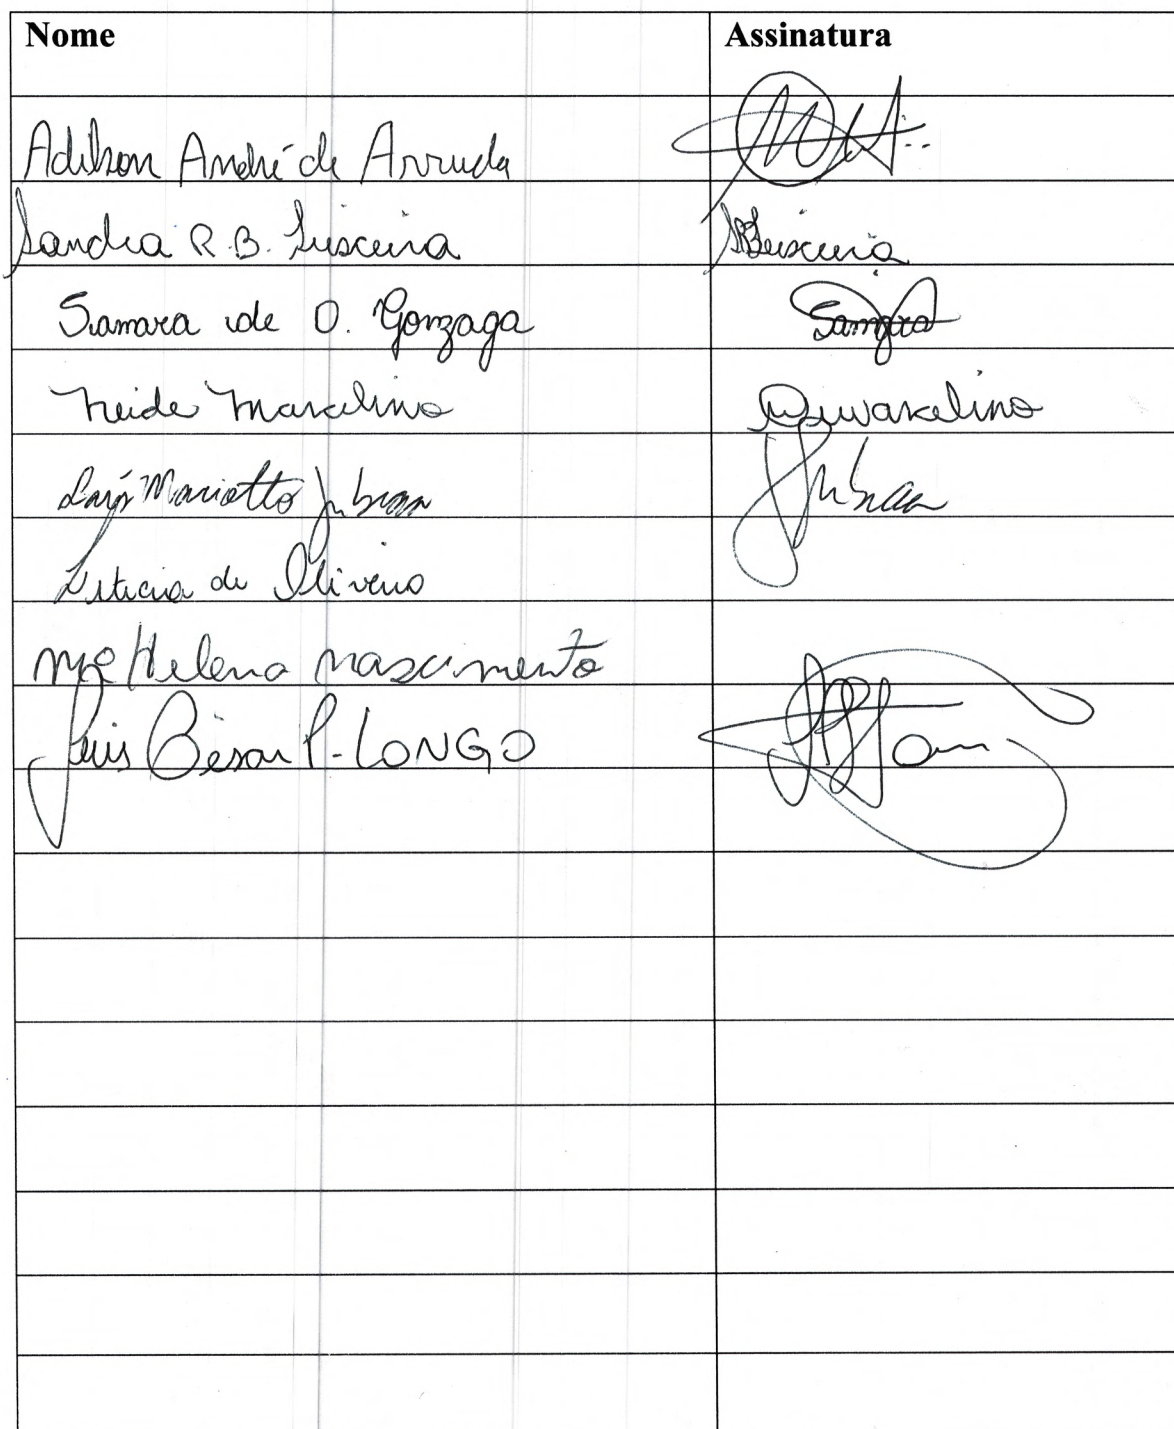 Nome Assinatura
Adilson André de Arruda
Sandra R.B. Teixeira RBTeixeira
Samara de O. Gonzaga Samara
Neide Marcelino Nmarcelino
Laís Mariotto Jubran Jubran
Leticia de Oliveira
Mª Helena Nascimento
Luis Cesar P. LONGO